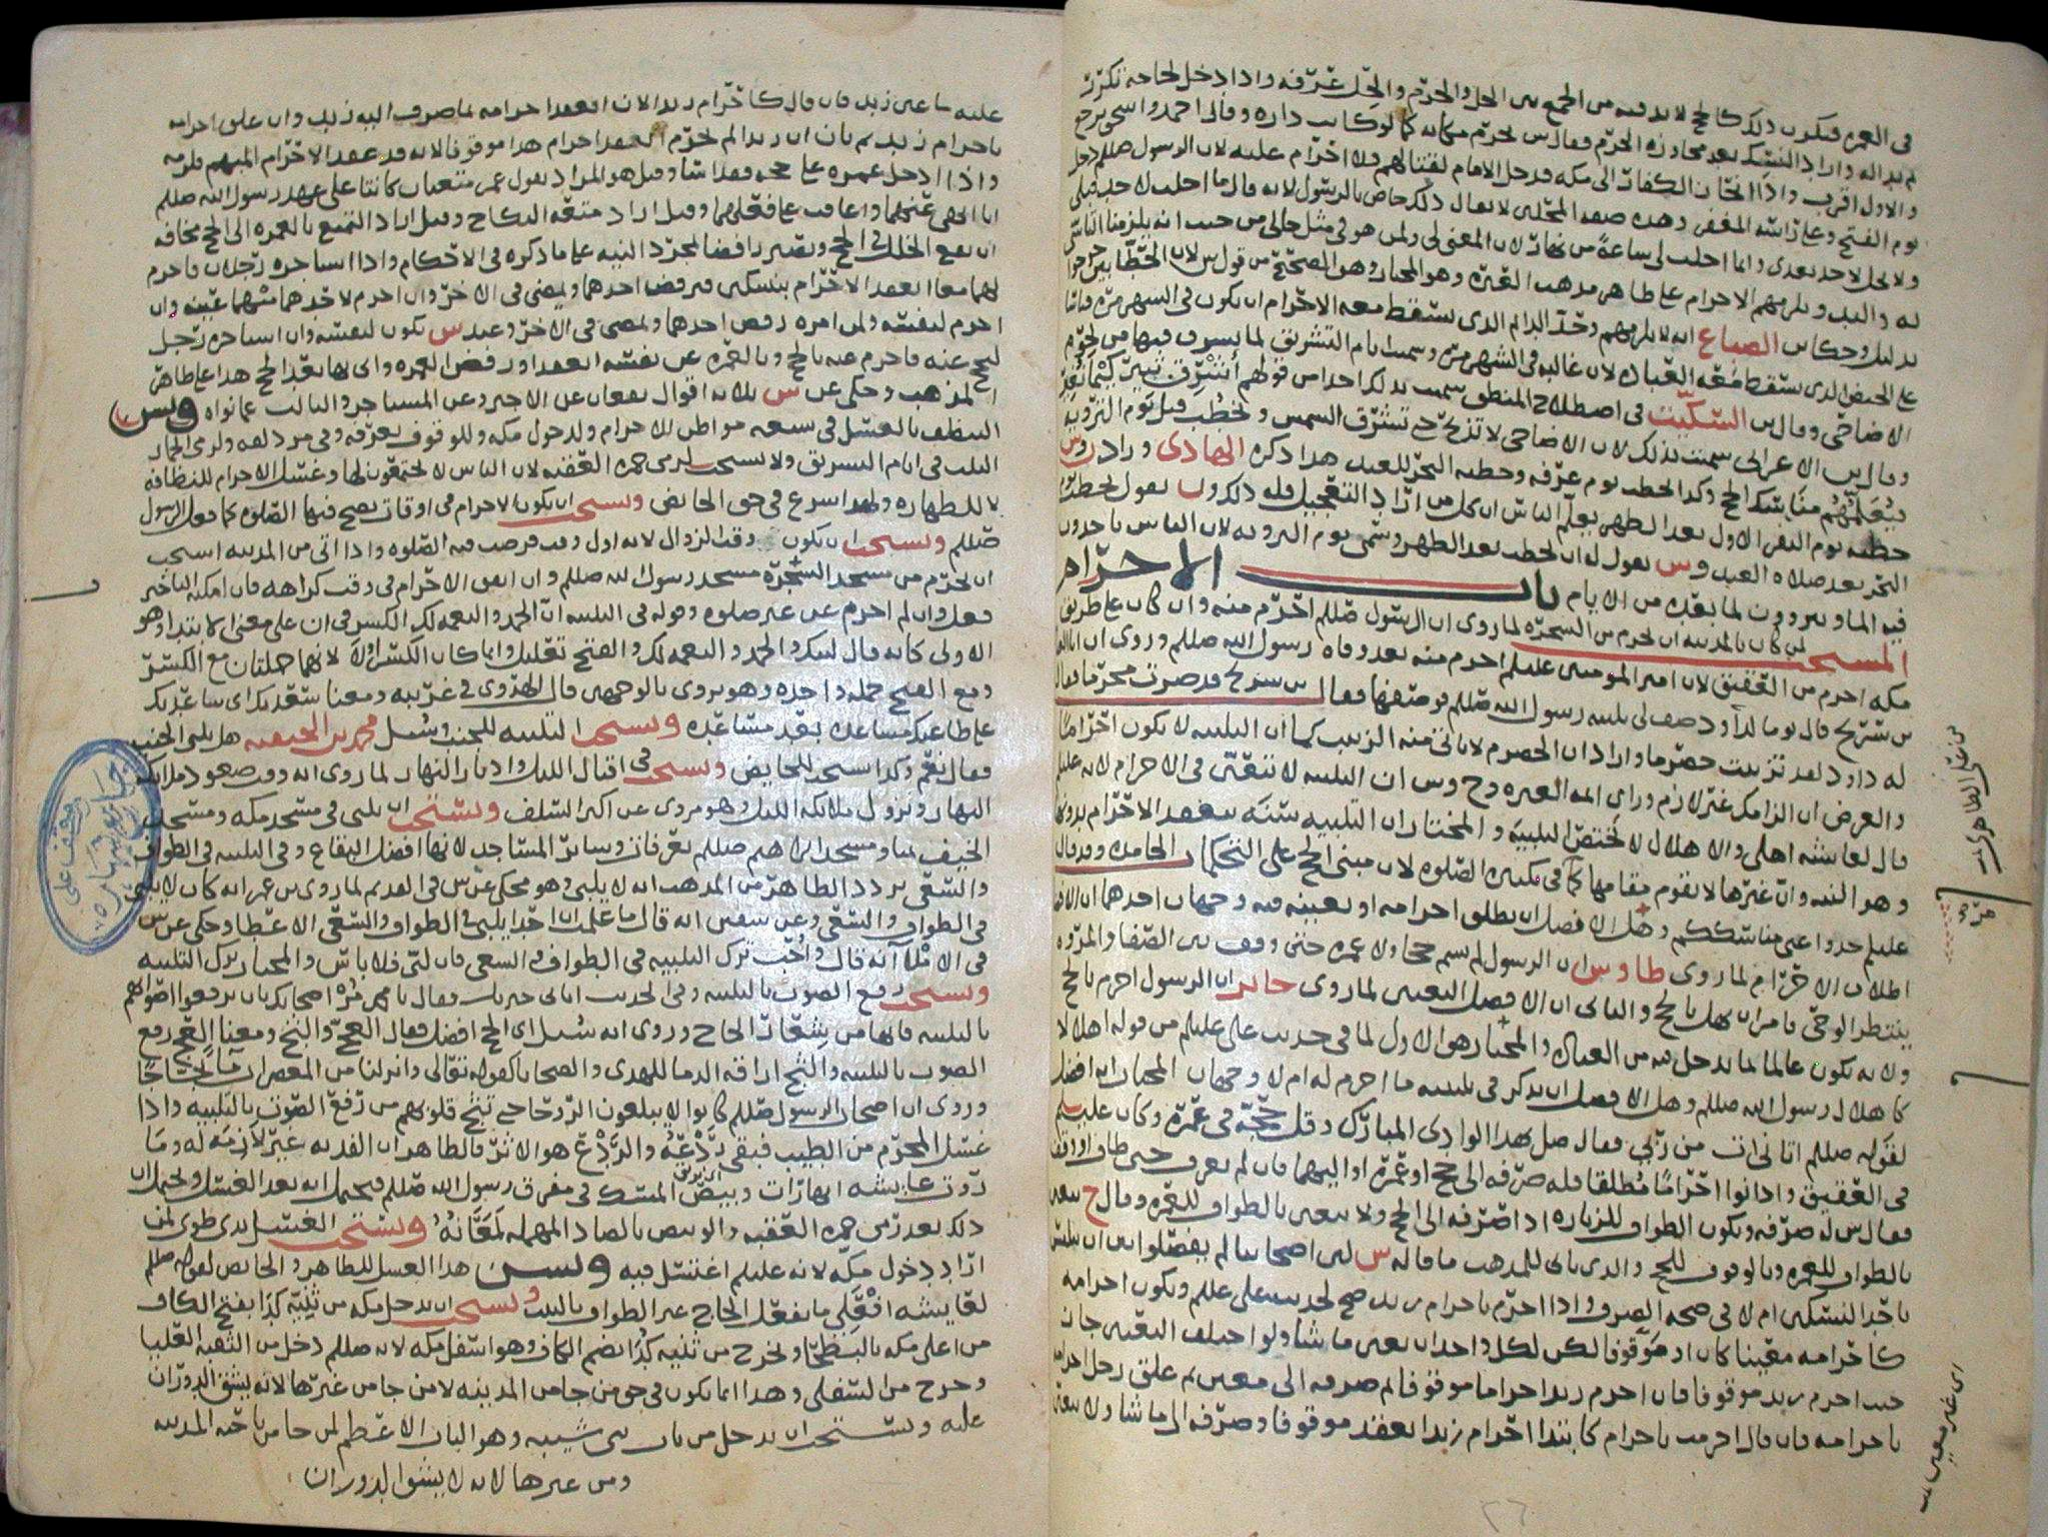 في العمره فيكون ذلك كالحج لا بد فيه من الجمع بين الحل والحرم والحل عرفه واذا دخل لحاجه تكرر
لم بدا له واراد النسك بعد مجاوزه الحرم فقال س لحرم مكانه كما لو كانت داره وقال احمد واسحق يرجع
والاول اقرب واذا التجا الكفار الى مكه فدخل الامام لقتالهم فلا احرام عليه لان الرسول صللم دخل
يوم الفتح وعلى راسه المغفر وهذه صفه المحلين لا يقال ذلك خاص بالرسول لانه قال ما احلت لاحد قبلي
ولا تحل لاحد بعدي وانما احلت لي ساعة من نهار لان المعنى لي ولمن هو في مثل حالي من حيث انه يلزمنا التاسي
له واليه ويلزمهم الاحرام على ظاهر مذهب العتره وهو المختار وهو الصحيح من قول س لان الحطابين خرجوا
بدليل وحكا ابن الصباغ انه لا يلزمهم وحد الدائم الذي يسقط معه الاحرام ان يكون في الشهر مره قياسا
على الحيض الذي يسقط معه العباده لان غالبه في الشهر مره وسميت ايام التشريق لما يشرق فيها من لحوم
الاضاحي وقال بن السكيت في اصطلاح المنطق سميت بذلك اخذا من قولهم أشرق ثبير كيما نغير
وقال بن الاعرابي سميت بذلك لان الاضاحي لا تذبح حتى تشرق الشمس ويخطب قبل يوم الترويه
فيعلمهم مناسك الحج وكذا الخطب يوم عرفه وخطبه النحر للعيد هذا ذكره الهادي وزاد
خطبه يوم النفر الاول بعد الظهر يعلم الناس ان كل من اراد التعجيل فله ذلك و يقول يخطب يوم
النحر بعد صلاه العيد وس يقول له ان يخطب بعد الظهر وسمي يوم الترويه لان الناس ياخذون
فيه الماء ويتزودون لما بعده من الايام باب الاحرام
المستحب لمن كان بالمدينه ان يحرم من الشجره لما روى ان الرسول صللم احرم منه وان كان على طريق
مكه احرم من العقيق لان امير المومنين عليلم احرم منه بعد وفاه رسول الله صللم وروى ان
بن شريح قال يوما لداود صف لي تلبيه رسول الله صللم فوصفها فقال بن سريج قد صرت محرما فقال
له داود لقد تزببت حصرما واراد ان الحصرم لا ياتي منه الزبيب كما ان التلبيه لا تكون احراما
والغرض ان الزامك غير لازم وراى ائمه العتره وح وس ان التلبيه لا تتعين في الاحرام لانه عليلم
قال لعايشه اهلي والاهلال لا يختص التلبيه والمختار ان التلبيه سنه ينعقد الاحرام بدونها
وهو النيه وان غيرها لا تقوم مقامها كما في تكبيره الصلوه لان مبنى الحج على التحكمات الجامده وقد قال
عليلم خذوا عني مناسككم وهل الافضل ان يطلق احرامه او تعيينه فيه وجهان احدهما ان الافضل
اطلاق الاحرام لما روى طاوس ان الرسول لم يسم حجا ولا عمره حتى وقف بين الصفا والمروه
ينتظر الوحي فامر ان يهل بالحج والثاني ان الافضل التعيين لما روى جابر ان الرسول احرم بالحج
ولانه يكون عالما لما يدخل فيه من العباده والمختار هو الاول لما في حديث علي عليلم من قوله اهلالا
كاهلال رسول الله صللم وهل الافضل ان يذكر في تلبيته ما احرم له ام لا وجهان المختار انه افضل
لقوله صللم اتاني ات من ربي فقال صل بهذا الوادي المبارك وقل حجة في عمره وكان عليلم
في العقيق واذا نوا احراما مطلقا فله صرفه الى حج او عمره او اليهما فان لم يصرف حتى طاف او وقف
فقال س له صرفه ويكون الطواف للزياره اذا صرفه الى الحج ولا يتعين بالطواف للعمره وقال ح يتعين
بالطواف للعمره وبالوقوف للحج والذي ياتي للمذهب ما قاله س لان اصحابنا لم يفصلوا
باحد النسكين ام لا في صحه الصرف واذا احرم باحرام زيد صح لحديث علي عليلم ويكون احرامه
كاحرامه معينا كان او موقوفا لكن لكل واحد ان يعين ما شا ولو اختلف التعيين جاز
حيث احرم زيد موقوفا فان احرم زيد احراما موقوفا ثم صرفه الى معين ثم علق رجل احرامه
باحرامه فان قال احرمت باحرام كابتدا احرام زيد انعقد موقوفا وصرفه الى ما شا ولا يتعين
عليه ما عين زيد فان قال كاحرام زيد الان انعقد احرامه لما صرف اليه زيد وان علق احرامه
باحرام زيد ثم بان ان زيدا لم يحرم انعقد احرام هذا موقوفا لانه قد عقد الاحرام المبهم فلزمه
واذا ادخل عمره على حجه فقد اسا وقيل هو المراد بقول عمر متعتان كانتا على عهد رسول الله صللم
انا انهى عنهما واعاقب على فعلهما وقيل اراد متعه النكاح وقيل اراد التمتع بالعمره الى الحج مخافه
ان يقع الخلل في الحج ويصير رافضا بمجرد النيه على ما ذكره في الاحكام واذا استاجره رجلان فاحرم
لهما معا انعقد الاحرام بنسكين فيرفض احدهما ويمضي في الاخر وان احرم لاحدهما مبهما عينه وان
احرم لنفسه ولمن امره رفض احدهما ومضى في الاخر وعند س يكون لنفسه وان استاجره رجل
ليحج عنه فاحرم عنه بالحج وبالعمره عن نفسه انعقد او رفض العمره واتى بها بعد الحج هذا على ظاهر
المذهب وحكي عن س ثلاثه اقوال يقعان عن الاجير وعن المستاجر والثالث عما نواه وليس
التنظف بالغسل في سبعه مواطن للاحرام ولدخول مكه وللوقوف بعرفه وفي مزدلفه ولرمي الجمار
الثلث في ايام التشريق ولا يستحب لرمي جمره العقبه لان الناس لا يجتمعون لها وغسل الاحرام للنظافه
لا للطهاره ولهذا شرع في حق الحائض ويستحب ان يكون الاحرام في اوقات يصح فيها الصلوه كما فعل الرسول
صللم ويستحب ان يكون وقت الزوال لانه اول وقت فرضت فيه الصلوه واذا اتى من المدينه استحب
ان يحرم من مسجد الشجره مسجد رسول الله صللم وان اتفق الاحرام في وقت كراهه فان امكنه التاخير
فعل وان لم احرم عن غير صلوه وقوله في التلبيه ان الحمد والنعمه لك الكسر في ان على معنى الابتدا وهو
الاولى كانه قال لبيك والحمد والنعمه لك والفتح تعليل وانما كان الكسر اولى لانهما جملتان مع الكسر
ومع الفتح جمله واحده وهو يروى بالوجهين قال الهروي في غريبه ومعنا سعديك اي ساعديك
على طاعتك مساعده بعد مساعده ويستحب التلبيه للجنب وسئل محمد بن الحنفيه هل يلبي الجنب
فقال نعم وكذا استحب للحايض ويستحب في اقبال الليل وادبار النهار لما روي انه وقت صعود ملائكه
النهار ونزول ملائكه الليل وهو مروي عن اكثر السلف ويستحب ان يلبي في مسجد مكه ومسجد
الخيف بمنا ومسجد ابراهيم صللم بعرفات وسائر المساجد لانها افضل البقاع وفي التلبيه في الطواف
والسعي تردد الظاهر من المذهب انه لا يلبي وهو محكي عن س في القديم لما روي بن عمر انه كان لا يلبي
في الطواف والسعي وعن سفين انه قال ما علمت ان احدا يلبي في الطواف والسعي الا عطا وحكي عن س
في الاملا انه قال واحب ترك التلبيه في الطواف والسعي فان لبى فلا باس والمختار ترك التلبيه
ويستحب رفع الصوت بالتلبيه وفي الحديث اتاني جبريل فقال يا محمد مر اصحابك بان يرفعوا اصواتهم
بالتلبيه فانها من شعار الحاج وروي انه سئل اي الحج افضل فقال العج والثج ومعنا العج رفع
الصوت بالتلبيه والثج اراقه الدما للهدي والضحايا كقوله تعالى وانزلنا من المعصرات ماء ثجاجا
وروي ان اصحاب الرسول صللم كانوا لا يبلغون الروحا حتى تبح حلوقهم من رفع الصوت بالتلبيه واذا
غسل المحرم من الطيب فبقي ردعه والردع هو الاثر فالظاهر ان الفديه غير لازمه له وما
روت عايشه انها رات وبيص المسك في مفرق رسول الله صللم فيحتمل انه بعد الغسل ويحتمل ان
ذلك بعد رمي جمره العقبه والوبيص بالصاد المهمله لمعانه ويستحب الغسل بذي طوى لمن
اراد دخول مكه لانه عليلم اغتسل فيه وليس هذا الغسل للطاهر والحائض لقوله صللم
لعايشه افعلي ما يفعل الحاج غير الطواف بالبيت ويستحب ان يدخل مكه من ثنيه كدا بفتح الكاف
من اعلى مكه بالبطحا ويخرج من ثنيه كدا بضم الكاف وهو اسفل مكه لانه صللم دخل من الثنيه العليا
وخرج من السفلى وهذا انما يكون في حق من جا من المدينه لا من جا من غيرها لانه يشق الدوران
عليه ويستحب ان يدخل من باب بني شيبه وهو الباب الاعظم لمن جا من ناحيه المدينه
ومن غيرها لانه لا يشق الدوران